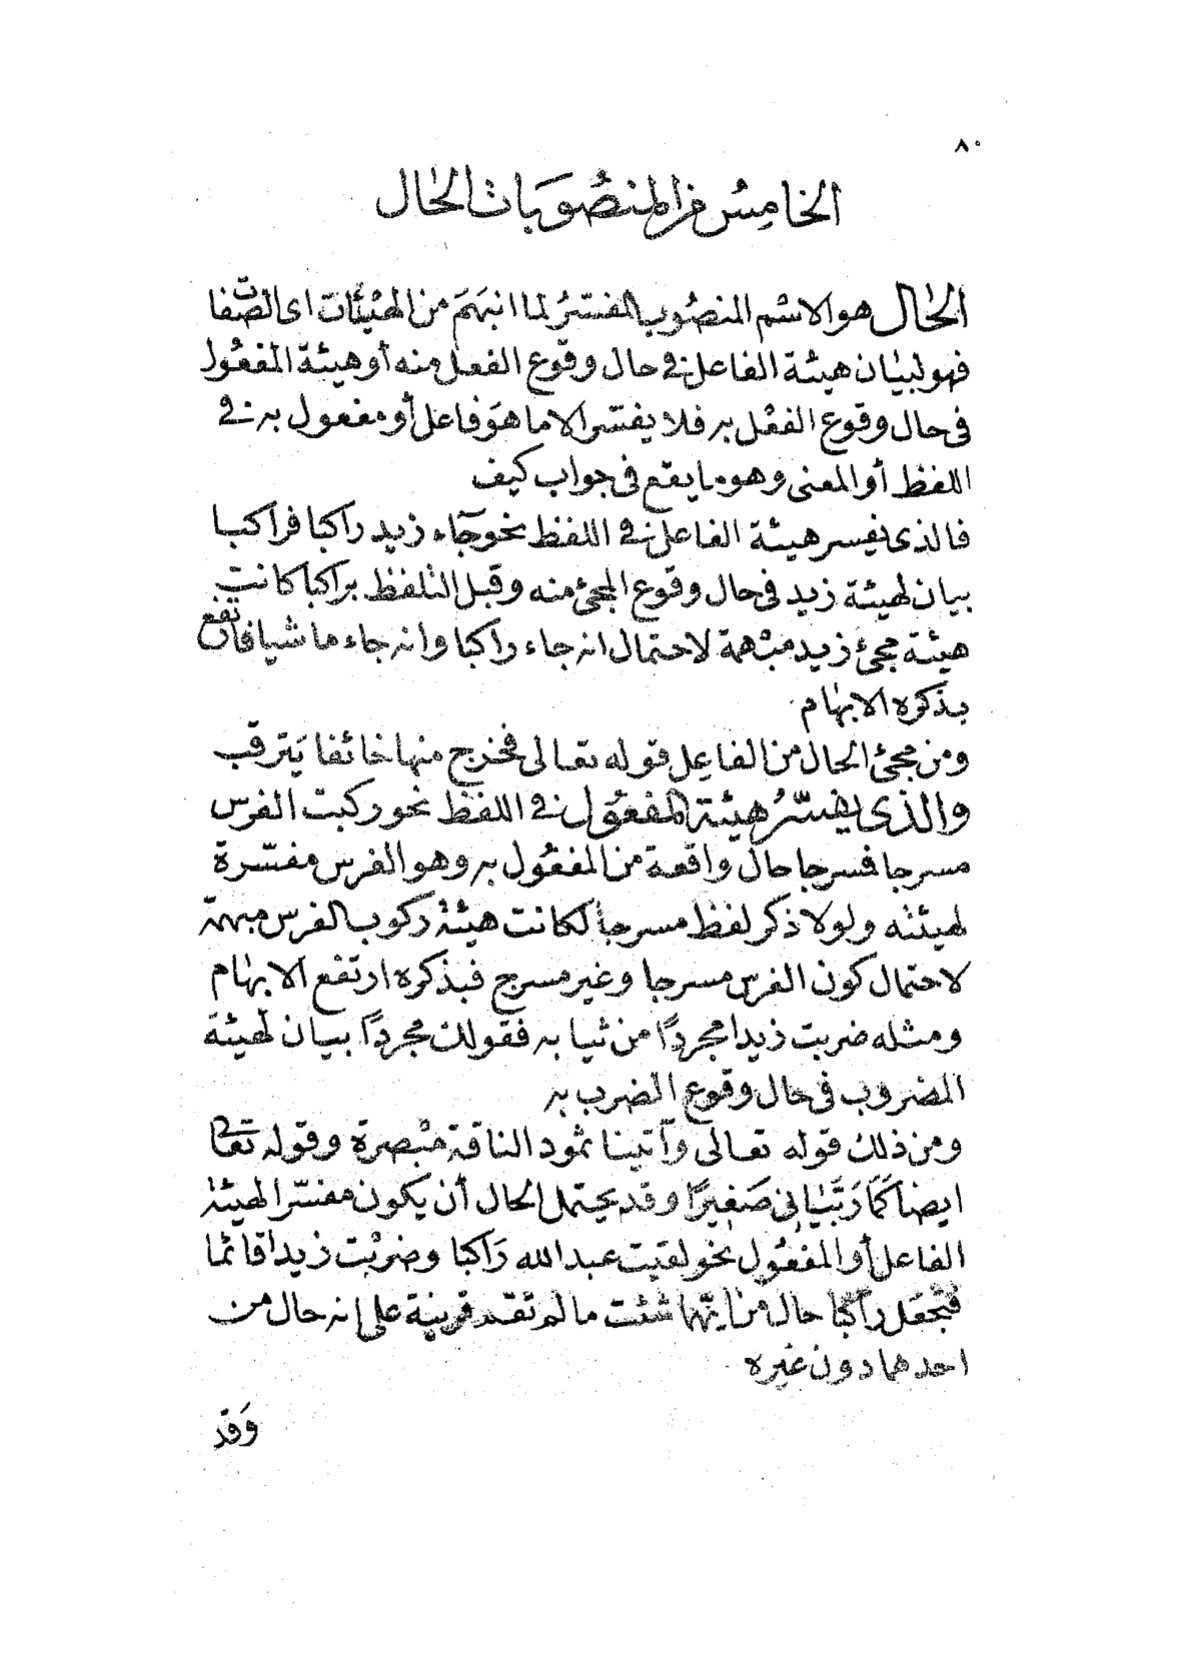 ٨٠
الخامِسُ من المنصُوبَات الحال
الحال هو الاسْم المنصُوب المفسّرُ لما انبَهَمَ من الهَيْئَات اى الصّفات
فهو لبيان هيئة الفاعل فى حال وقوع الفعل منه أو هيئة المفعُول
فى حال وقوع الفعْل به فلا يفسّر الا ما هوَ فاعل أو مفعول به فى
اللفظ أو المعنى وهو ما يقع فى جواب كيف
فالذى يفسر هيئة الفاعل فى اللفظ نحو جآء زيد راكبا فراكبا
بيان لهيئة زيد فى حال وقوع المجئ منه وقبل التلفظ براكبا كانت
هيئة مجئ زيد مبْهمة لاحتمال انه جاء راكبا وانه جاء ماشيا فارتفع
بذكره الابهام
ومن مجئ الحال من الفاعِل قوله تعالى فخرج منها خائفا يَترقب
والذى يفسّرُ هيئة المفعُول فى اللفظ نحو ركبت الفرس
مسرجا فسرجا حال واقعة من المفعُول به وهو الفرس مفسّرة
لهيئته ولولا ذكر لفظ مسرجاً لكانت هيئة ركوب الفرس مبهمة
لاحتمال كون الفرس مسرجا وغير مسرج فبذكره ارتفع الابهام
ومثله ضربت زيدا مجردًا من ثيابه فقولك مجردًا بيان لهيئة
المضروب فى حال وقوع الضرب به
ومن ذلك قوله تعالى وآتينا ثمود الناقة مُبْصرة وقوله تعالى
ايضا كَمَا رَبَّيَانِى صَغِيرًا وقد يحتمل الحال أن يكون مفسّرا لهيئة
الفاعل أو المفعُول نحو لقيت عبد الله رَاكبا وضربْت زيدا قائما
فتجْعَل راكبا حالا من ايّهما شئت ما لم تقم قرينة على انه حال من
احدهما دون غيره
وَقد